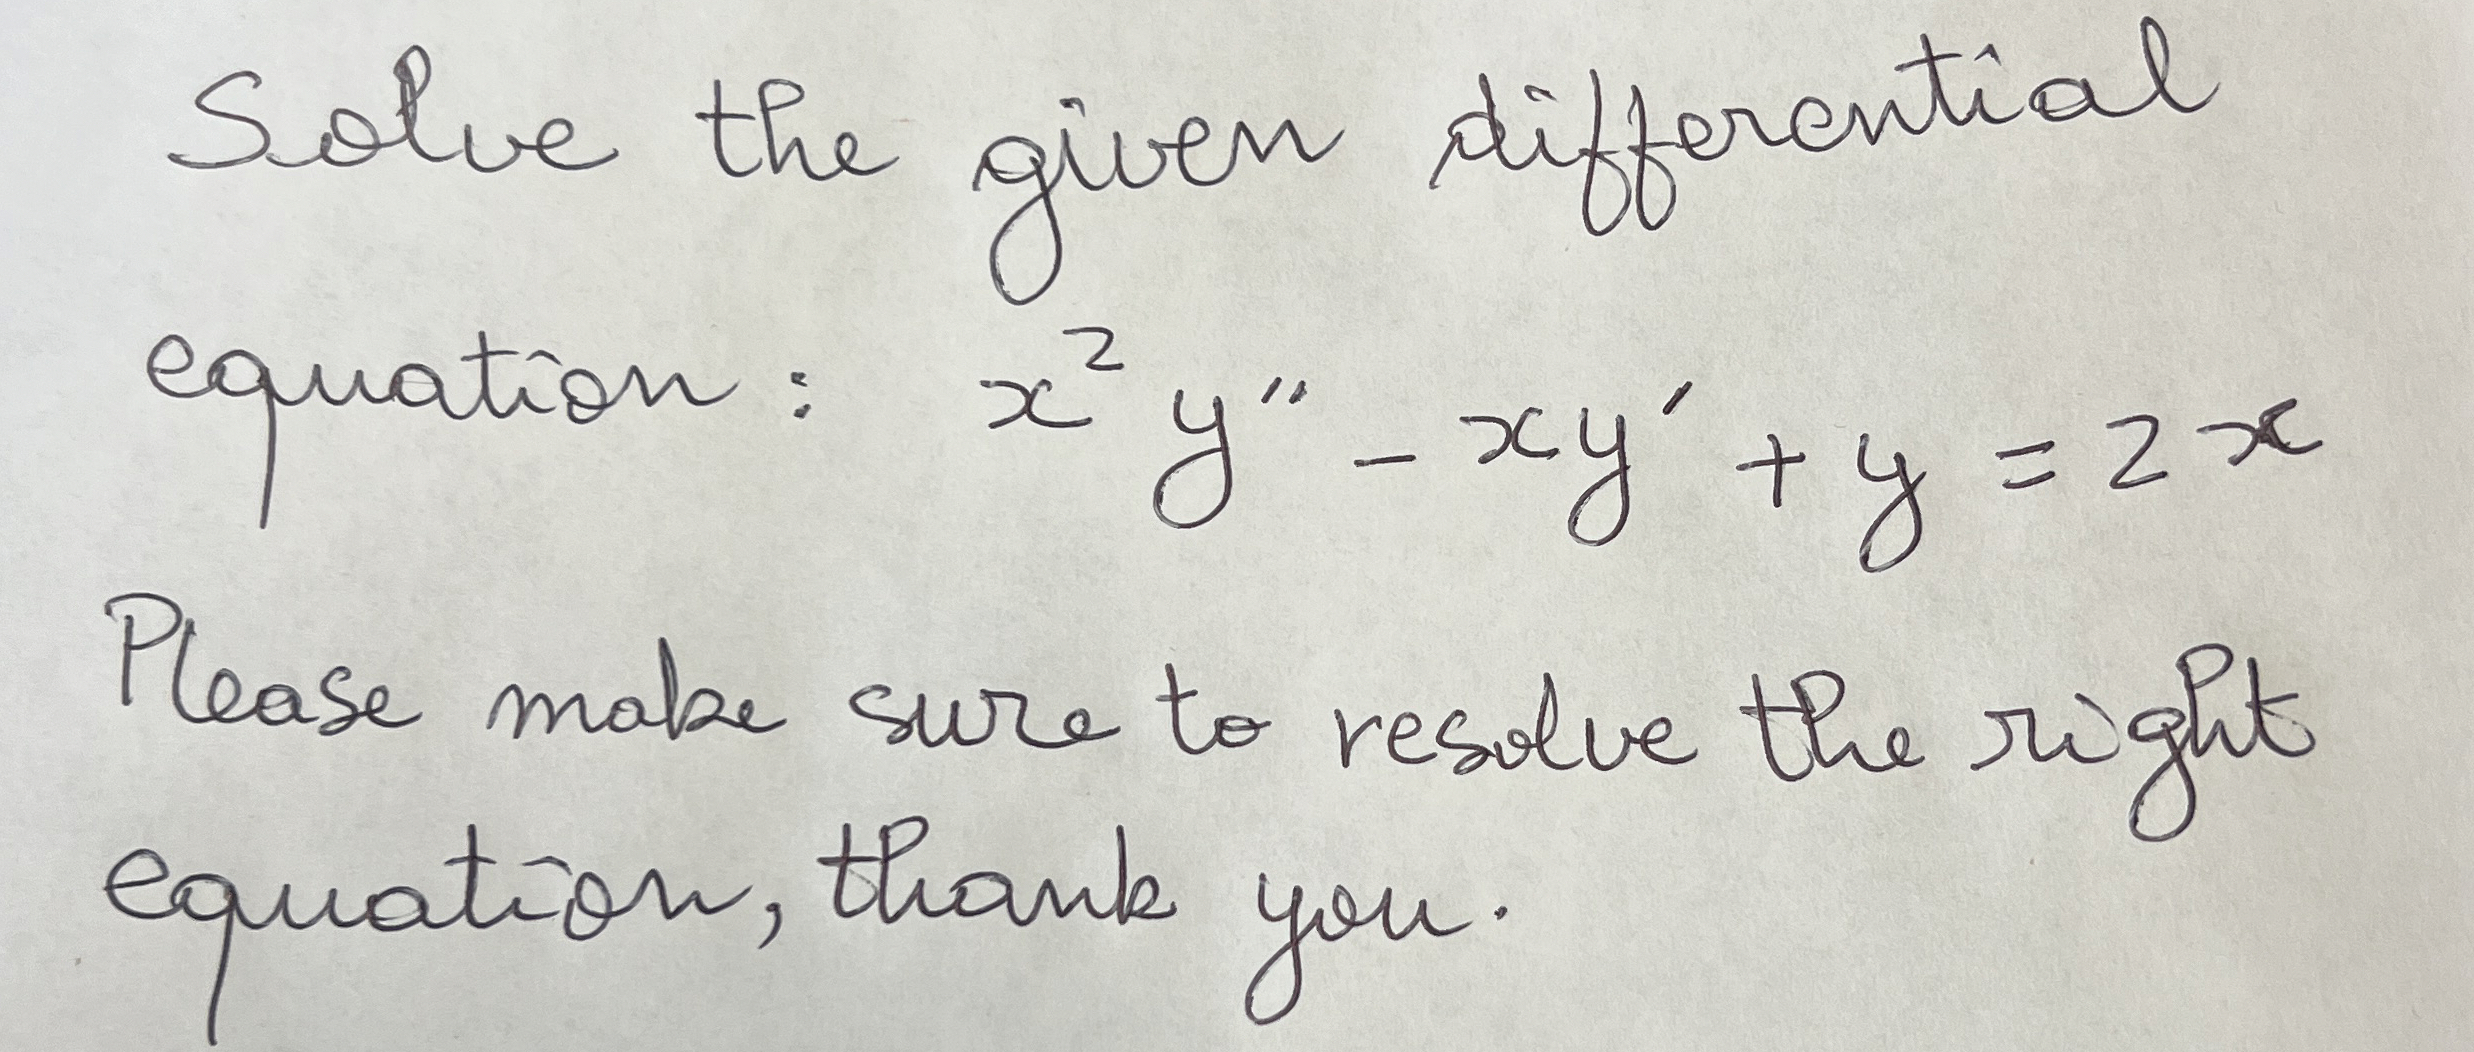 Solve the given differential
equation: x² y″ - xy′ + y = 2x
Please make sure to resolve the right
equation, thank you.